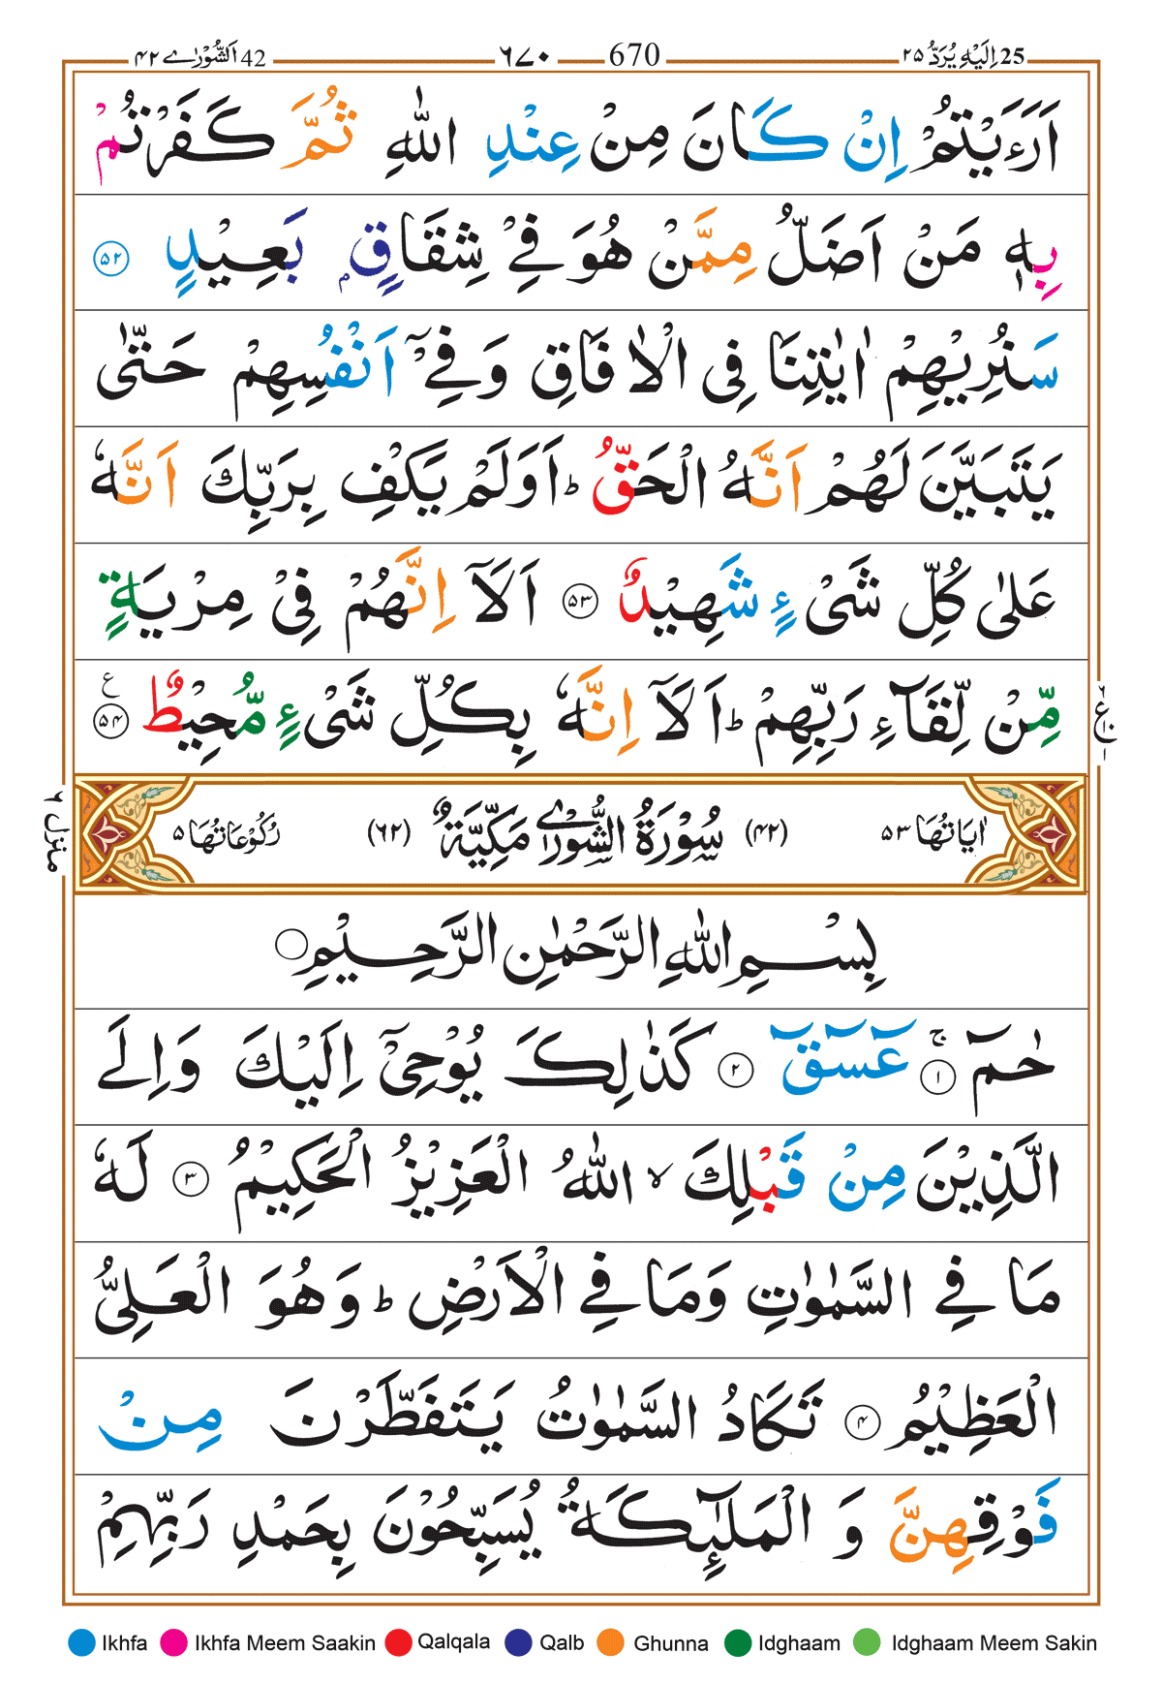 25 اِلَيْهِ يُرَدُّ ۲۵ 670 ٦٧٠ 42 اَلشُّوْرٰے ۴۲
اَرَءَيْتُمْ اِنْ كَانَ مِنْ عِنْدِ اللّٰهِ ثُمَّ كَفَرْتُمْ
بِهٖ مَنْ اَضَلُّ مِمَّنْ هُوَ فِيْ شِقَاقٍۭ بَعِيْدٍ ۵۲
سَنُرِيْهِمْ اٰيٰتِنَا فِى الْاٰفَاقِ وَفِيْۤ اَنْفُسِهِمْ حَتّٰى
يَتَبَيَّنَ لَهُمْ اَنَّهُ الْحَقُّ ؕ اَوَلَمْ يَكْفِ بِرَبِّكَ اَنَّهٗ
عَلٰى كُلِّ شَىْءٍ شَهِيْدٌ ۵۳ اَلَاۤ اِنَّهُمْ فِىْ مِرْيَةٍ
مِّنْ لِّقَآءِ رَبِّهِمْ ؕ اَلَاۤ اِنَّهٗ بِكُلِّ شَىْءٍ مُّحِيْطٌ ۵۴ ع
منزل ٦
اٰيَاتُهَا ۵۳ (۴۲) سُوْرَةُ الشُّوْرٰے مَكِّيَّةٌ (٦۲) رُكُوْعَاتُهَا ۵
بِسْمِ اللّٰهِ الرَّحْمٰنِ الرَّحِيْمِ
حٰمٓ ۚ ۱ عٓسٓقٓ ۲ كَذٰلِكَ يُوْحِىْۤ اِلَيْكَ وَاِلَے
الَّذِيْنَ مِنْ قَبْلِكَ ۙ اللّٰهُ الْعَزِيْزُ الْحَكِيْمُ ۳ لَهٗ
مَا فِے السَّمٰوٰتِ وَمَا فِے الْاَرْضِ ؕ وَهُوَ الْعَلِىُّ
الْعَظِيْمُ ۴ تَكَادُ السَّمٰوٰتُ يَتَفَطَّرْنَ مِنْ
فَوْقِهِنَّ وَ الْمَلٰٓئِكَةُ يُسَبِّحُوْنَ بِحَمْدِ رَبِّهِمْ
Ikhfa Ikhfa Meem Saakin Qalqala Qalb Ghunna Idghaam Idghaam Meem Sakin